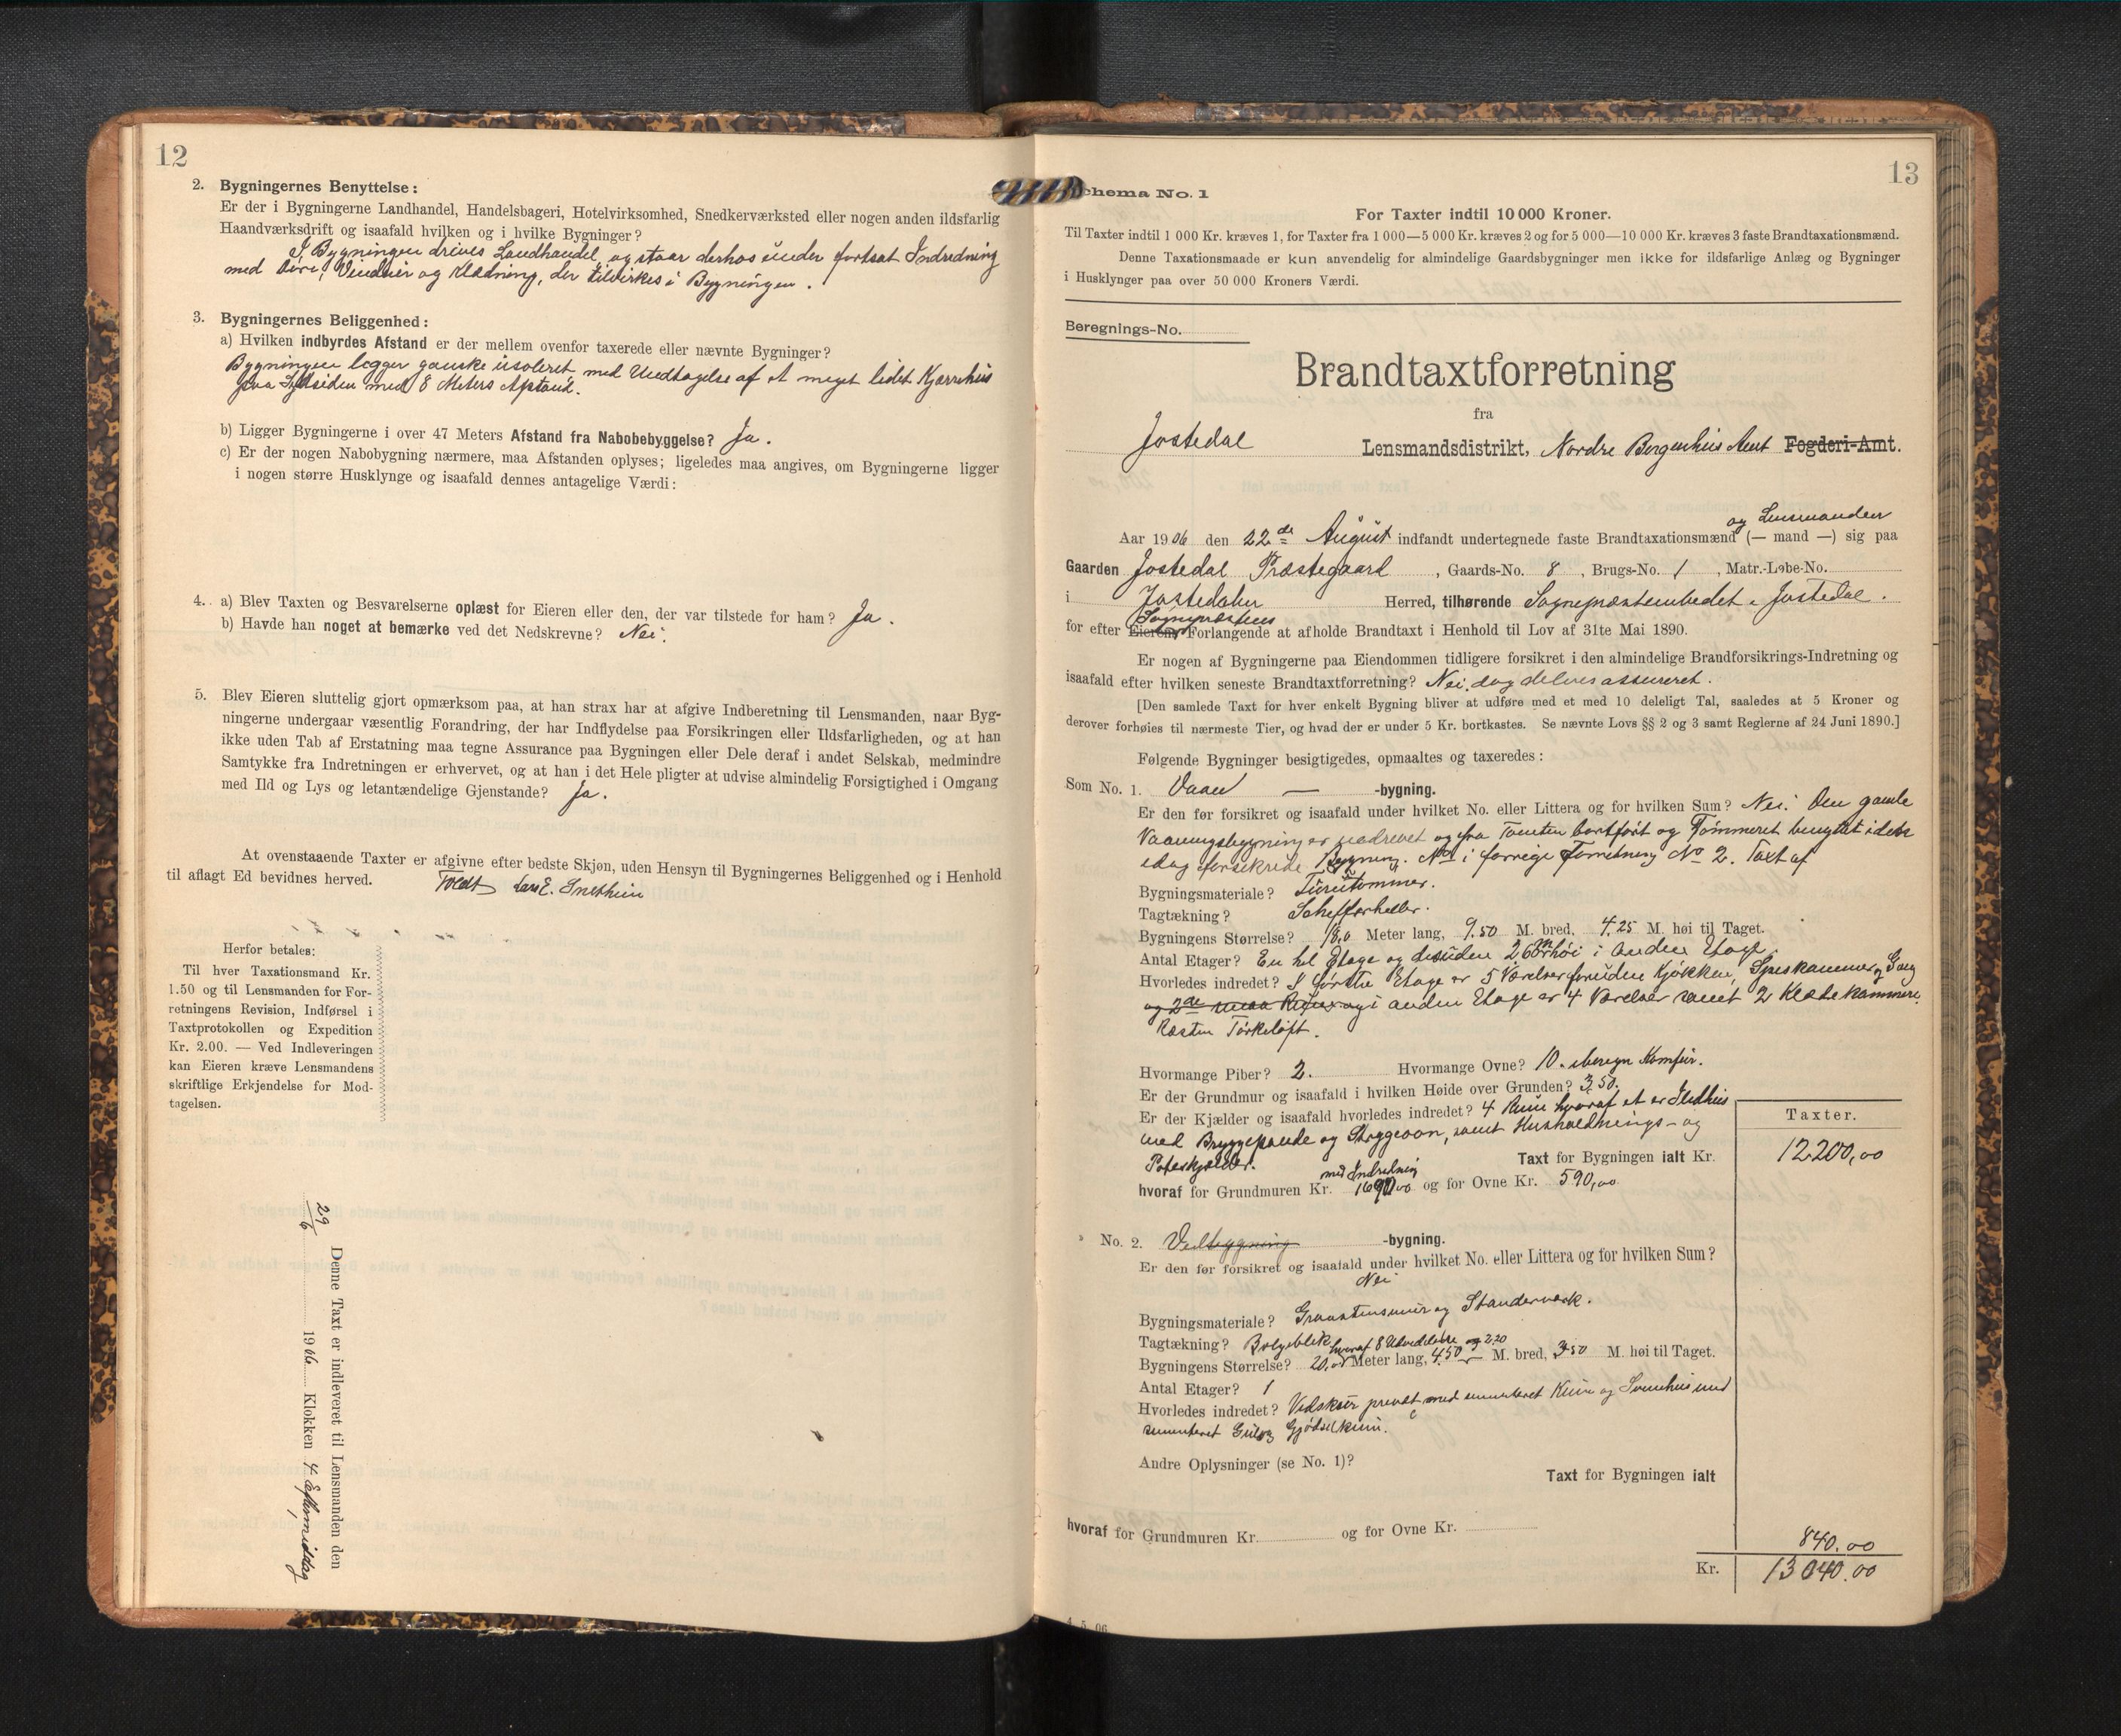 12
2. Bygningernes Benyttelse:
Er der i Bygningerne Landhandel, Handelsbageri, Hotelvirksomhed, Snedkerværksted eller nogen anden ildsfarlig
Haandværksdrift og isaafald hvilken og i hvilke Bygninger?
I Bygningen drives Landhandel og staar derhos under fortsat Indredning
med Døre, Vinduer og Klædning, der tilvirkes i Bygningen.
3. Bygningernes Beliggenhed:
a) Hvilken indbyrdes Afstand er der mellem ovenfor taxerede eller nævnte Bygninger?
Bygningen ligger ganske isoleret med Undtagelse af et meget lidet Kjærrehus
paa Sydsiden med 8 Meters Afstand.
b) Ligger Bygningerne i over 47 Meters Afstand fra Nabobebyggelse? Ja.
c) Er der nogen Nabobygning nærmere, maa Afstanden oplyses; ligeledes maa angives, om Bygningerne ligger
i nogen større Husklynge og isaafald dennes antagelige Værdi:
4. a) Blev Taxten og Besvarelserne oplæst for Eieren eller den, der var tilstede for ham? Ja.
b) Havde han noget at bemærke ved det Nedskrevne? Nei.
5. Blev Eieren sluttelig gjort opmærksom paa, at han strax har at afgive Indberetning til Lensmanden, naar Byg-
ningerne undergaar væsentlig Forandring, der har Indflydelse paa Forsikringen eller Ildsfarligheden, og at han
ikke uden Tab af Erstatning maa tegne Assurance paa Bygningen eller Dele deraf i andet Selskab, medmindre
Samtykke fra Indretningen er erhvervet, og at han i det Hele pligter at udvise almindelig Forsigtighed i Omgang
med Ild og Lys og letantændelige Gjenstande? Ja.
At ovenstaaende Taxter er afgivne efter bedste Skjøn, uden Hensyn til Bygningernes Beliggenhed og i Henhold
til aflagt Ed bevidnes herved. Foldt Lars E. Snethun
Herfor betales:
Til hver Taxationsmand Kr.
1.50 og til Lensmanden for For-
retningens Revision, Indførsel i
Taxtprotokollen og Expedition
Kr. 2.00. — Ved Indleveringen
kan Eieren kræve Lensmandens
skriftlige Erkjendelse for Mod-
tagelsen.
Denne Taxt er indleveret til Lensmanden den
29/6 1906 Klokken 4 Eftermiddag
13
Schema No. 1
For Taxter indtil 10 000 Kroner.
Til Taxter indtil 1 000 Kr. kræves 1, for Taxter fra 1 000—5 000 Kr. kræves 2 og for 5 000—10 000 Kr. kræves 3 faste Brandtaxationsmænd.
Denne Taxationsmaade er kun anvendelig for almindelige Gaardsbygninger men ikke for ildsfarlige Anlæg og Bygninger
i Husklynger paa over 50 000 Kroners Værdi.
Beregnings-No.
Brandtaxtforretning
fra
Jostedal Lensmandsdistrikt, Nordre Bergenhus Amt Fogderi-Amt.
og Lensmanden
Aar 1906 den 22de August indfandt undertegnede faste Brandtaxationsmænd (— mand —) sig paa
Gaarden Jostedal Præstegaard, Gaards-No. 8, Brugs-No. 1, Matr.-Løbe-No.
i Jostedalen Herred, tilhørende Sognepræstembedet i Jostedal.
Sognepræstens
for efter Eierens Forlangende at afholde Brandtaxt i Henhold til Lov af 31te Mai 1890.
Er nogen af Bygningerne paa Eiendommen tidligere forsikret i den almindelige Brandforsikrings-Indretning og
isaafald efter hvilken seneste Brandtaxtforretning? Nei, dog delvis assureret.
[Den samlede Taxt for hver enkelt Bygning bliver at udføre med et med 10 deleligt Tal, saaledes at 5 Kroner og
derover forhøies til nærmeste Tier, og hvad der er under 5 Kr. bortkastes. Se nævnte Lovs §§ 2 og 3 samt Reglerne af 24 Juni 1890.]
Følgende Bygninger besigtigedes, opmaaltes og taxeredes:
Som No. 1. Vaan — -bygning.
Er den før forsikret og isaafald under hvilket No. eller Littera og for hvilken Sum? Nei. Den gamle
Vaaningsbygning er nedrevet og fra Tomten bortført og Tømmeret benyttet i den
idag forsikrede Bygning. No i forrige Forretning No 2. Taxt af
Bygningsmateriale? Furutømmer.
Tagtækning? Skifferheller.
Bygningens Størrelse? 18,0 Meter lang, 9.50 M. bred, 4.25 M. høi til Taget.
Antal Etager? En hel Etage og desuden i anden Etage.
Hvorledes indredet? I første Etage er 5 Værelser foruden Kjøkken, Spiskammer og Gang
og 2de i anden Etage er 4 Værelser samt 2 Klædekammere.
Resten Tørkeloft.
Hvormange Piber? 2. Hvormange Ovne? 10. iberegn Komfur.
Er der Grundmur og isaafald i hvilken Høide over Grunden? 3.50.
Er der Kjælder og isaafald hvorledes indredet? 4 Rum hvoraf et er Ildhus
med Bryggepande og Skyggeovn, samt Husholdnings- og
Poteskjælder.
Taxt for Bygningen ialt Kr.
Taxter.
12200,00
med Indredning
hvoraf for Grundmuren Kr. 1690,00 og for Ovne Kr. 590,00
No. 2. Vedbygning -bygning.
Er den før forsikret og isaafald under hvilket No. eller Littera og for hvilken Sum?
Nei
Bygningsmateriale? Graastensmur og Standerverk.
Tagtækning? Bølgeblik hvoraf 8 og 2,20
Bygningens Størrelse? 20,00 Meter lang, 4.50 M. bred, 3.50 M. høi til Taget.
Antal Etager? 1
Hvorledes indredet? Vedskur privat med sementeret Kum og Svinehus med
sementeret Gulv og Gjødselkum.
Andre Oplysninger (se No. 1)?
Taxt for Bygningen ialt
hvoraf for Grundmuren Kr. og for Ovne Kr.
840.00
Kr. 13040.00
4. 5. 06